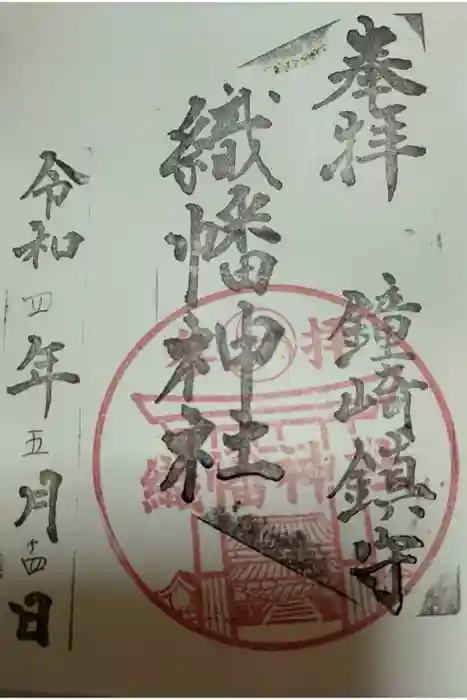 奉拝 鐘崎鎮守
織幡神社
令和四年五月十四日
参拝
織幡神社